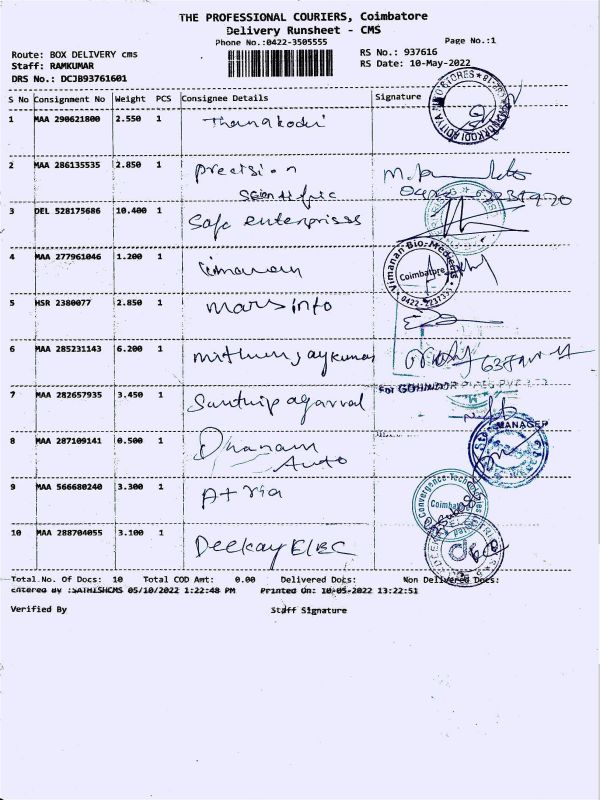 THE PROFESSIONAL COURIERS, Coimbatore
Delivery Runsheet - CMS
Phone No.:0422-3505555
Page No.:1
Route: BOX DELIVERY cms
RS No.: 937616
Staff: RAMKUMAR
RS Date: 10-May-2022
DRS No.: DCJB93761601
S No Consignment No Weight PCS Consignee Details Signature
1 MAA 290621800 2.550 1 Thangkodi
2 MAA 286135535 2.850 1 Precision
Scientific
3 DEL 528175686 10.400 1 Safe enterprises
4 MAA 277961046 1.200 1
Vimanan Bio-Medicals
Coimbatore
0422-2237357
5 HSR 2380077 2.850 1 Mars info
6 MAA 285231143 6.200 1 Mithun Jaykumar
7 MAA 282657935 3.450 1 Santhip agarval
For
MANAGER
8 MAA 287109141 0.500 1 Dhanam
Auto
9 MAA 566680240 3.300 1 Atria
Convergence Technologies
Coimbatore
10 MAA 288704055 3.100 1 Deekay Elec
Total No. Of Docs: 10 Total COD Amt: 0.00 Delivered Docs: Non Delivered Docs:
Entered By :SATHISHCMS 05/10/2022 1:22:48 PM Printed On: 10-05-2022 13:22:51
Verified By Staff Signature